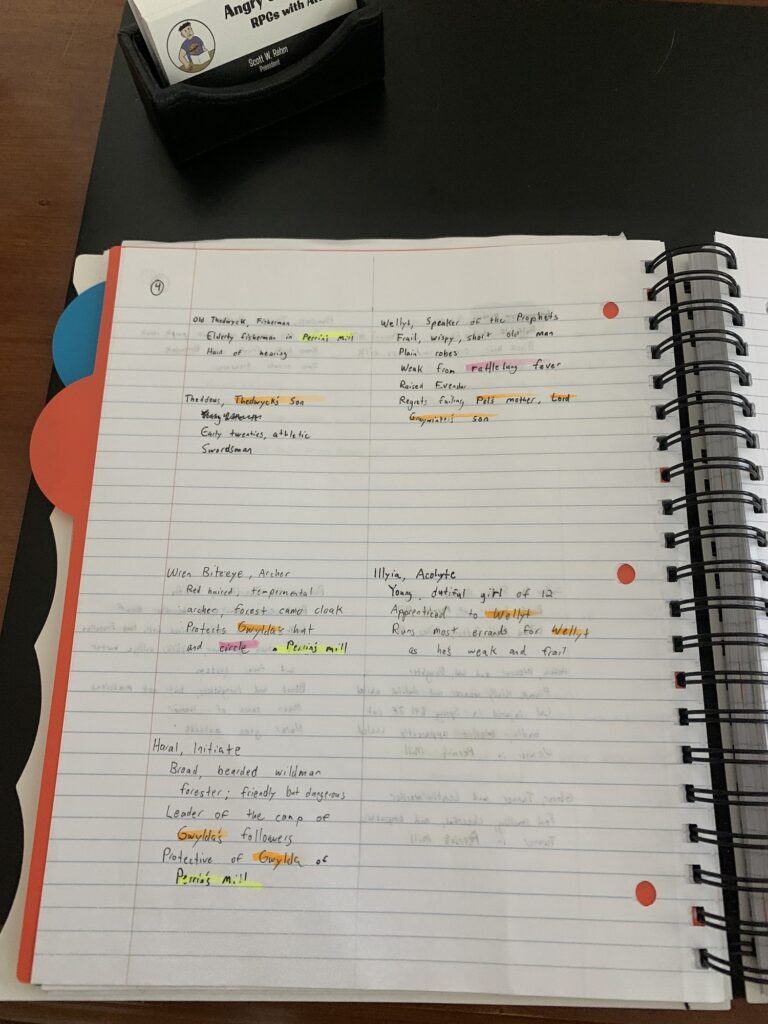 Angry
RPGs with
Scott W. Rehm
President
4
Old Thedwyck, Fisherman
Elderly fisherman in Perrin's Mill
Hard of hearing
Thaddeus, Thedwyck's Son
Early twenties, athletic
Swordsman
Wren Biteeye, Archer
Red haired, tempermental
archer, forest camo cloak
Protects Gwylda's hut
and circle Perrin's mill
Haral, Initiate
Broad, bearded wildman
forester; friendly but dangerous
Leader of the camp of
Gwylda's followers
Protective of Gwylda of
Perrin's mill
Wellyt, Speaker of the Prophets
Frail, wispy, short old man
Plain robes
Weak from rattlelung fever
Raised Evendur
Regrets failing Pel's mother, Lord
Graywinter's son
Illyia, Acolyte
Young, dutiful girl of 12
Apprenticed to Wellyt
Runs most errands for Wellyt
as he's weak and frail